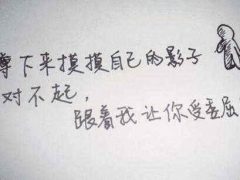 蹲下来摸摸自己的影子
对不起，
跟着我让你受委屈